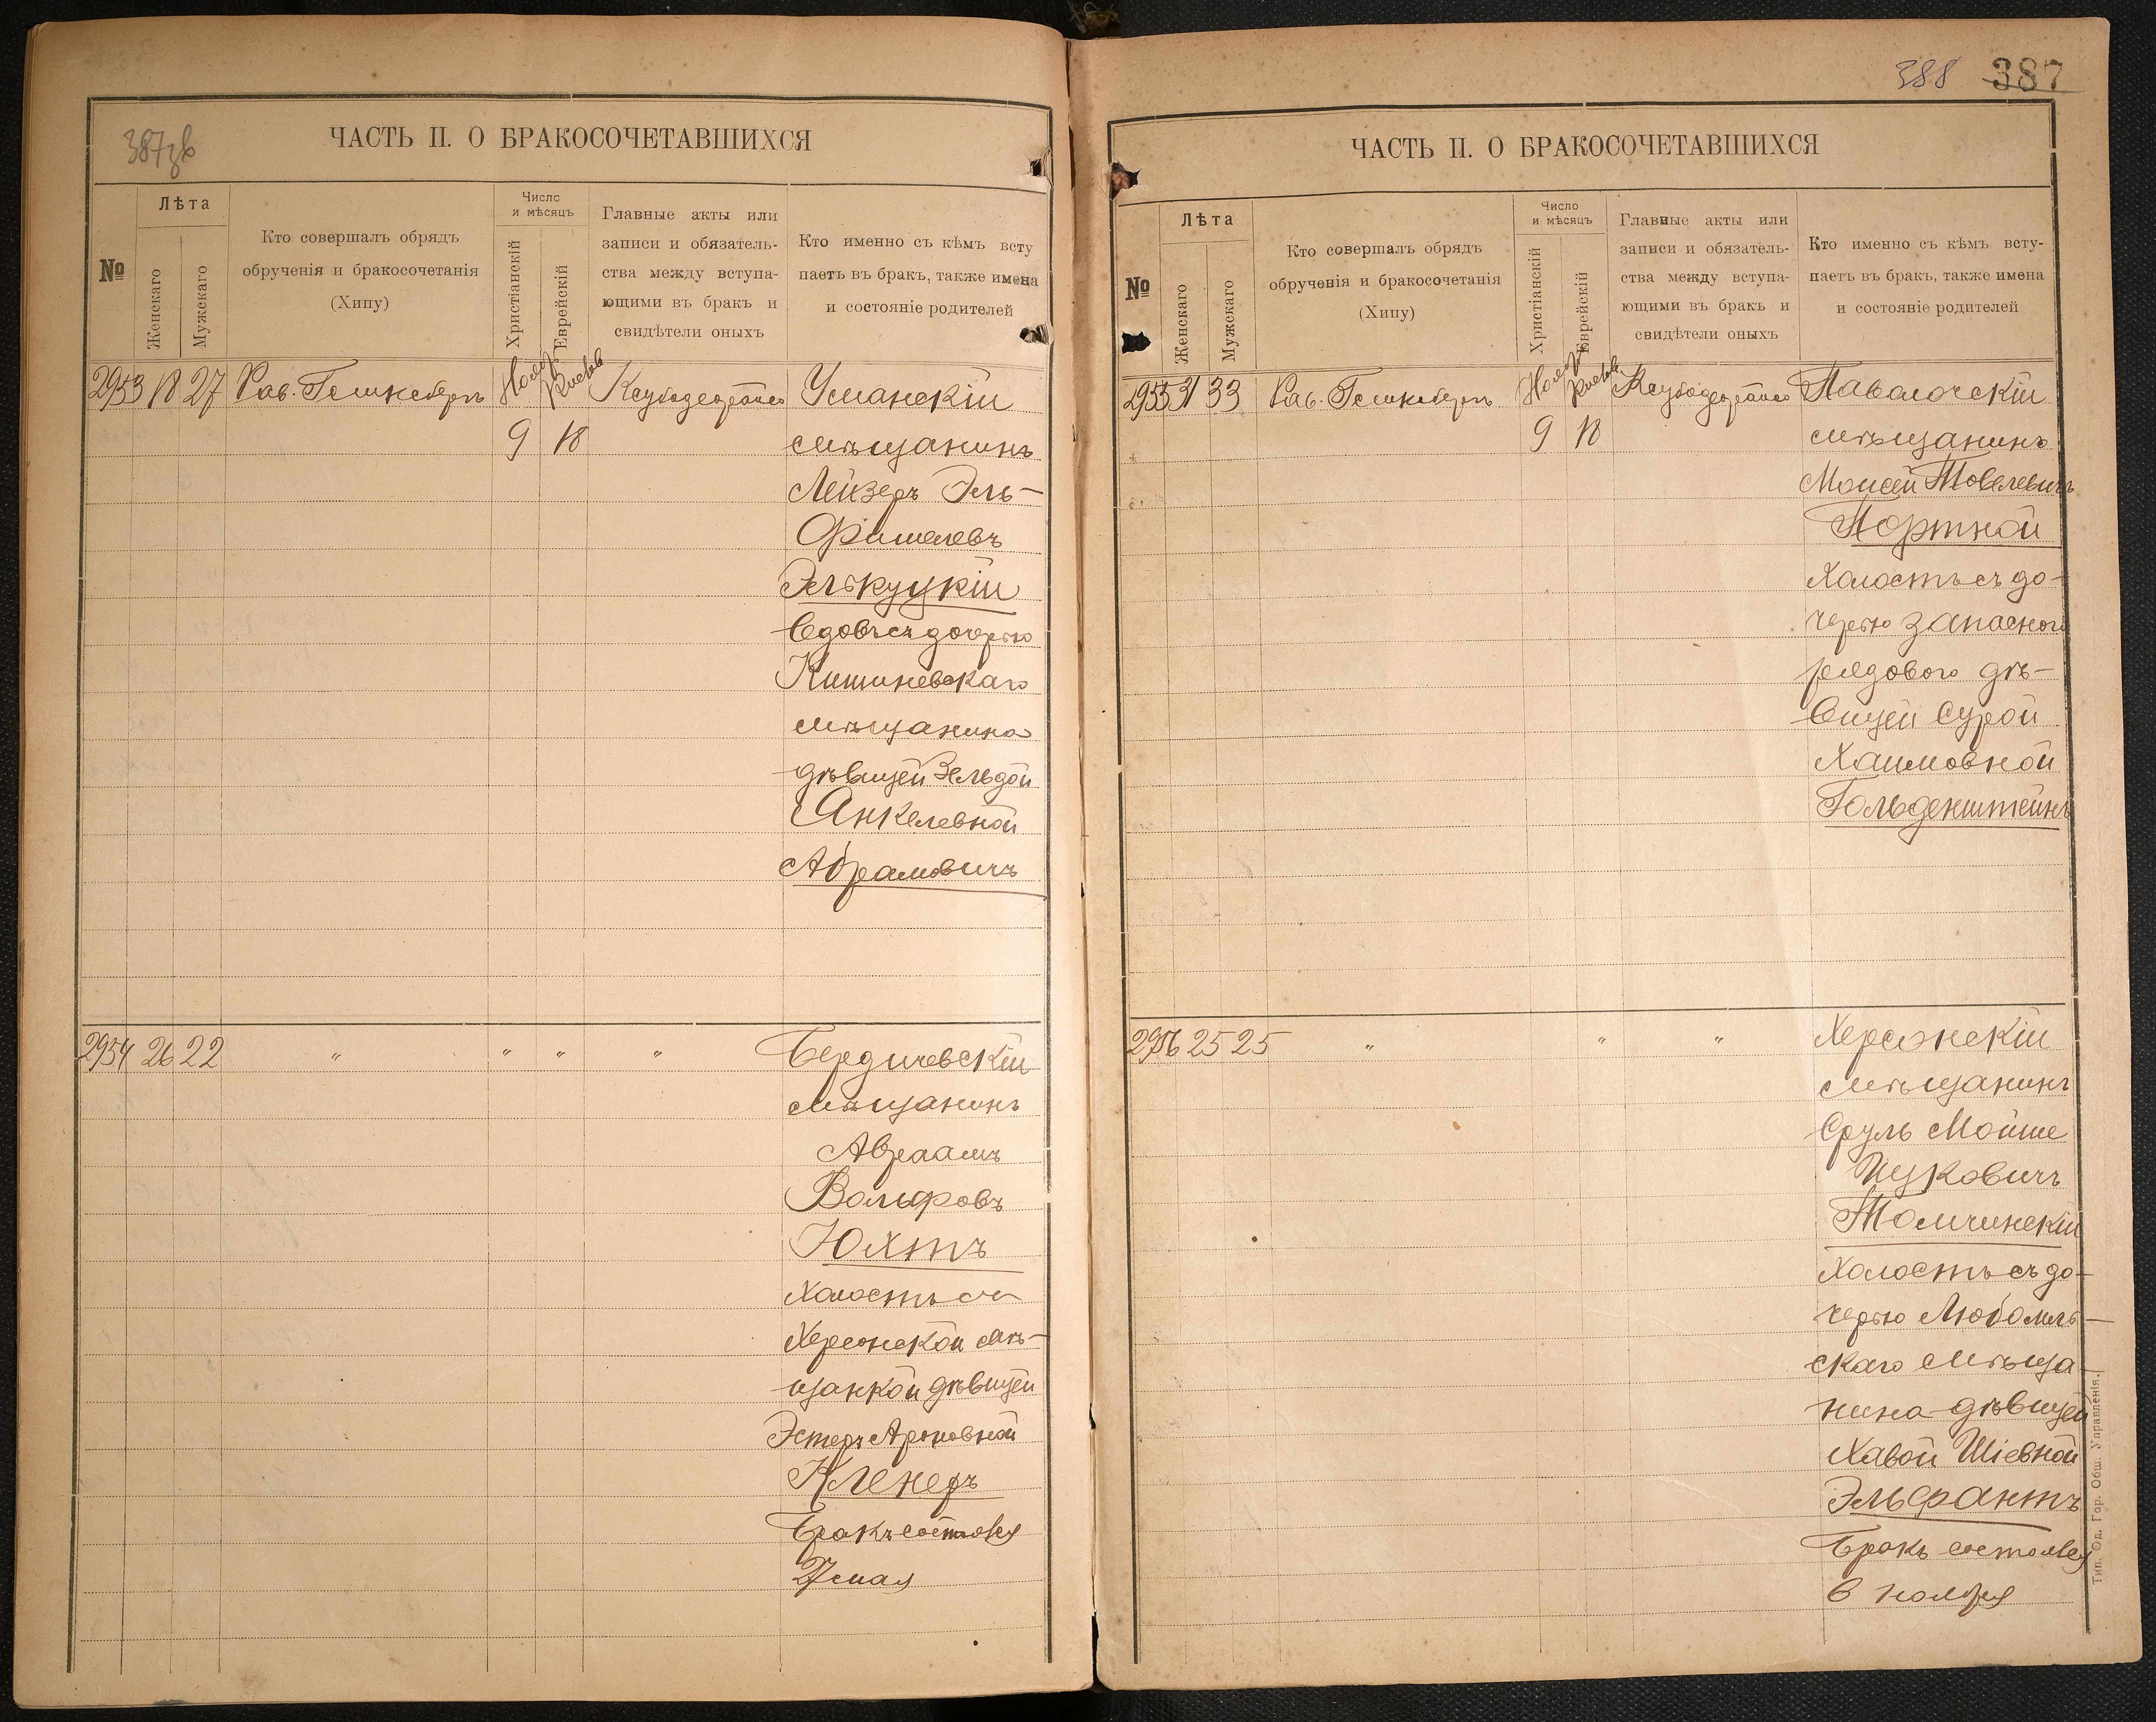 387зв
ЧАСТЬ II. О БРАКОСОЧЕТАВШИХСЯ
№
Лѣта
Женскаго
Мужскаго
Кто совершалъ обрядъ
обрученія и бракосочетанія
(Хипу)
Число
и мѣсяцъ
Христіанскій
Еврейскій
Главные акты или
записи и обязатель-
ства между вступа-
ющими въ бракъ и
свидѣтели оныхъ
Кто именно съ кѣмъ всту
паетъ въ бракъ, также имена
и состояніе родителей
2953 18 27 Рав. Ноября Кислева Уманскій
9 18 мѣщанинъ
Лейзеръ Эль-
Фишелевъ
Элькуцкій
вдовъ съ дочерью
Кишиневскаго
мѣщанина
дѣвицей Зельдой
Янкелевной
Абрамовичъ
2954 26 22 " " " " Бердичевскій
мѣщанинъ
Авраамъ
Вольфовъ
Юхтъ
холостъ съ
Херсонской мѣ-
щанкой дѣвицей
Эстеръ Ароновной
Кленеръ
Бракъ состоялся
27 мая
388 387
ЧАСТЬ II. О БРАКОСОЧЕТАВШИХСЯ
№
Лѣта
Женскаго
Мужскаго
Кто совершалъ обрядъ
обрученія и бракосочетанія
(Хипу)
Число
и мѣсяцъ
Христіанскій
Еврейскій
Главные акты или
записи и обязатель-
ства между вступа-
ющими въ бракъ и
свидѣтели оныхъ
Кто именно съ кѣмъ всту-
паетъ въ бракъ, также имена
и состояніе родителей
2955 31 33 Рав. Ноября Кислева Паволочскій
9 18 мѣщанинъ
Моисей Товелевичъ
Портной
холостъ съ до-
черью запасного
рядового дѣ-
вицей Сурой
Хаимовной
Гольденштейнъ
2956 25 25 " " " Херсонскій
мѣщанинъ
Сруль Мойше
Ицковичъ
Томчинскій
холостъ съ до-
черью Любомль-
скаго мѣща-
нина дѣвицей
Хавой Шіевной
Эльфантъ
Бракъ состоялся
6 ноября
Тип. Од. Гор. Общ. Управленія.